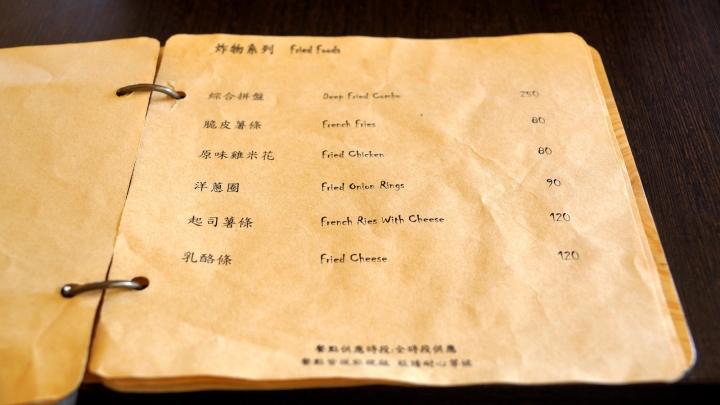 炸物系列 Fried Foods
綜合拼盤 Deep Fried Combo 250
脆皮薯條 French Fries 80
原味雞米花 Fried Chicken 80
洋蔥圈 Fried Onion Rings 90
起司薯條 French Ries With Cheese 120
乳酪條 Fried Cheese 120
餐點供應時段:全時段供應
餐點皆現點現做 敬請耐心等候